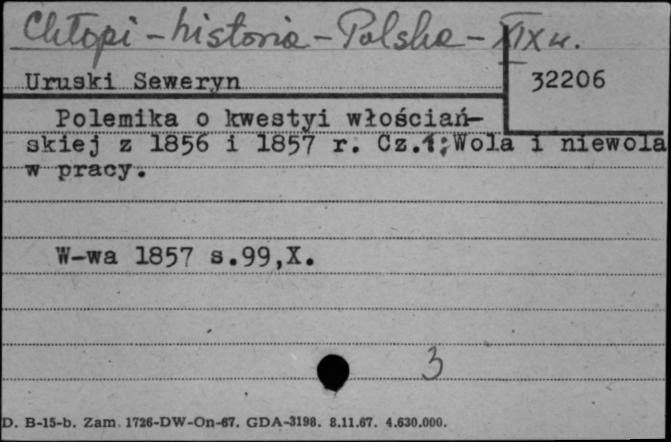 Chłopi - historia - Polska - XIX w.
Uruski Seweryn
32206
Polemika o kwestyi włościań-
skiej z 1856 i 1857 r. Cz.1:Wola i niewola
w pracy.
W-wa 1857 s.99,X.
3
D. B-15-b. Zam. 1726-DW-On-67. GDA-3198. 8.11.67. 4.630.000.